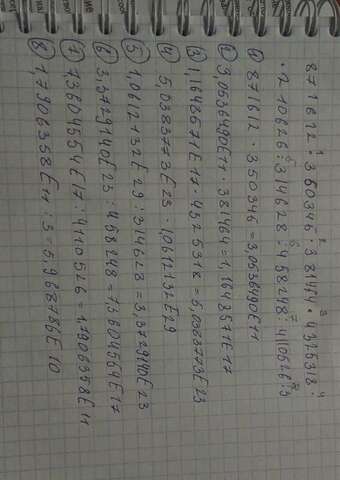 871612 · 350346 · 381464 · 4325318 :
· 210626 : 314628 : 458248 : 4110526 : 3
1 871612 · 350346 = 3,0536490E11
2 3,0536490E11 · 381464 = 1,1648571E17
3 1,1648571E17 · 4325318 = 5,0383773E23
4 5,0383773E23 · 1,0612132E29
5 1,0612132E29 : 314628 = 3,3729140E23
6 3,3729140E23 : 458248 = 7,3604554E17
7 7,3604554E17 : 4110526 = 1,7906358E11
8 1,7906358E11 : 3 = 5,968786E10